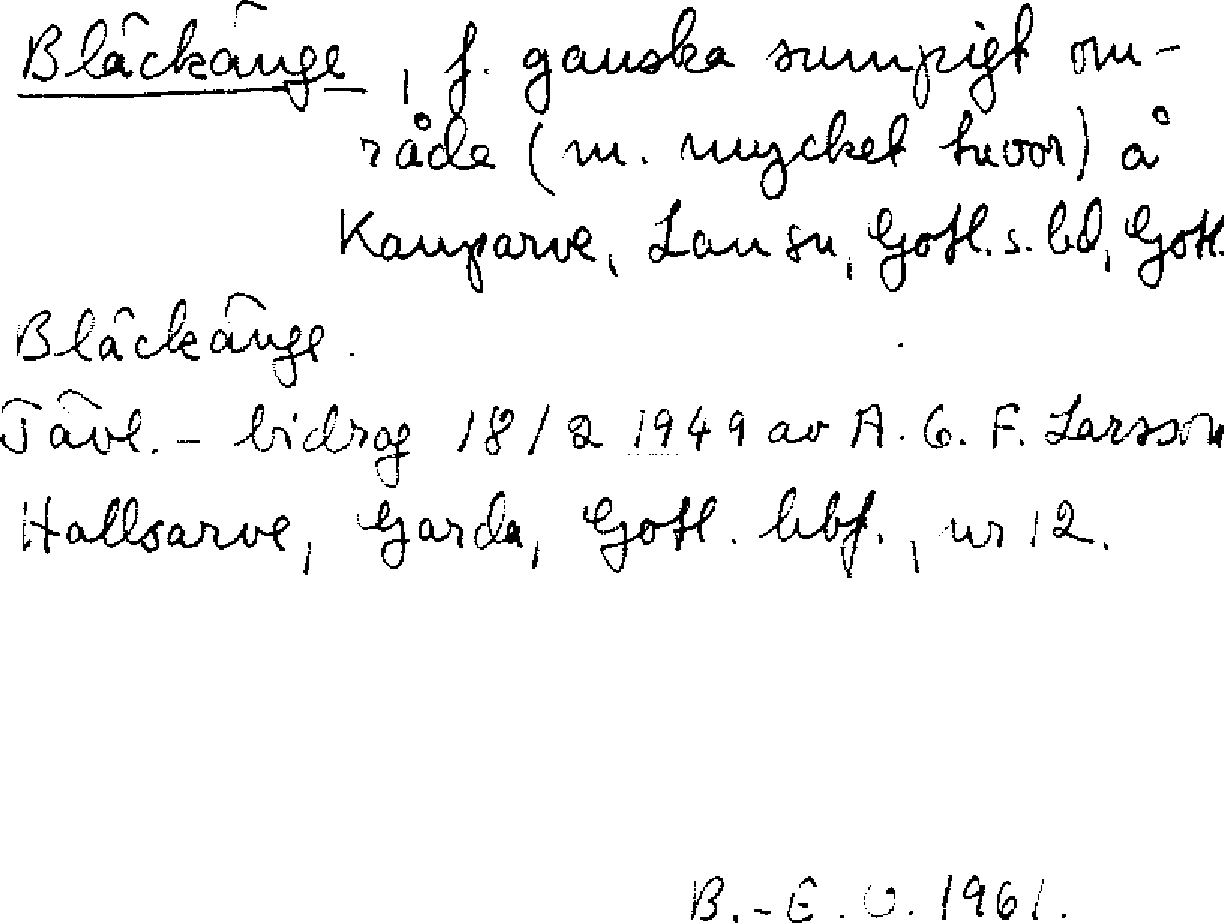 Bläckänge, f. ganska sumpigt om-
råde (m. mycket tuvor) å
Kauparve, Lau sn, Gotl. s. hd, Gotl.
Bläckänge.
Tävl.-bidrag 18/2 1949 av A. G. F. Larsson
Hallsarve, Garda, Gotl. hbf., nr 12.
B.-E. O. 1961.